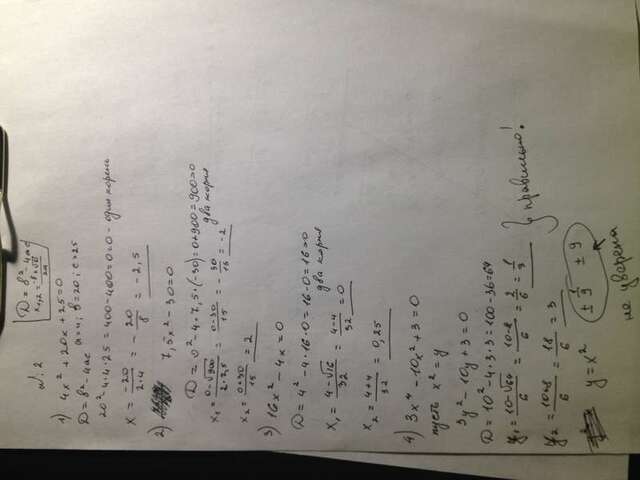 № 2
D = b² - 4ac
x₁,₂ = -b ± √D / 2a
1) 4x² + 20x + 25 = 0
D = b² - 4ac a = 4; b = 20; c = 25
20² - 4·4·25 = 400 - 400 = 0 = 0 - один корень
x = -20 / 2·4 = - 20 / 8 = -2,5
2) 7,5x² - 30 = 0
D = 0² - 4·7,5·(-30) = 0 + 900 = 900 > 0
два корня
x₁ = 0 - √900 / 2·7,5 = 0-30 / 15 = - 30 / 15 = -2
x₂ = 0+30 / 15 = 2
3) 16x² - 4x = 0
D = 4² - 4·16·0 = 16 - 0 = 16 > 0
два корня
x₁ = 4 - √16 / 32 = 4-4 / 32 = 0
x₂ = 4+4 / 32 = 0,25
4) 3x⁴ - 10x² + 3 = 0
пусть x² = y
3y² - 10y + 3 = 0
D = 10² - 4·3·3 = 100 - 36 = 64
y₁ = 10 - √64 / 6 = 10-8 / 6 = 2 / 6 = 1 / 3
y₂ = 10+8 / 6 = 18 / 6 = 3
} правильно!
y = x² ± 1/9 ± 9
не уверена